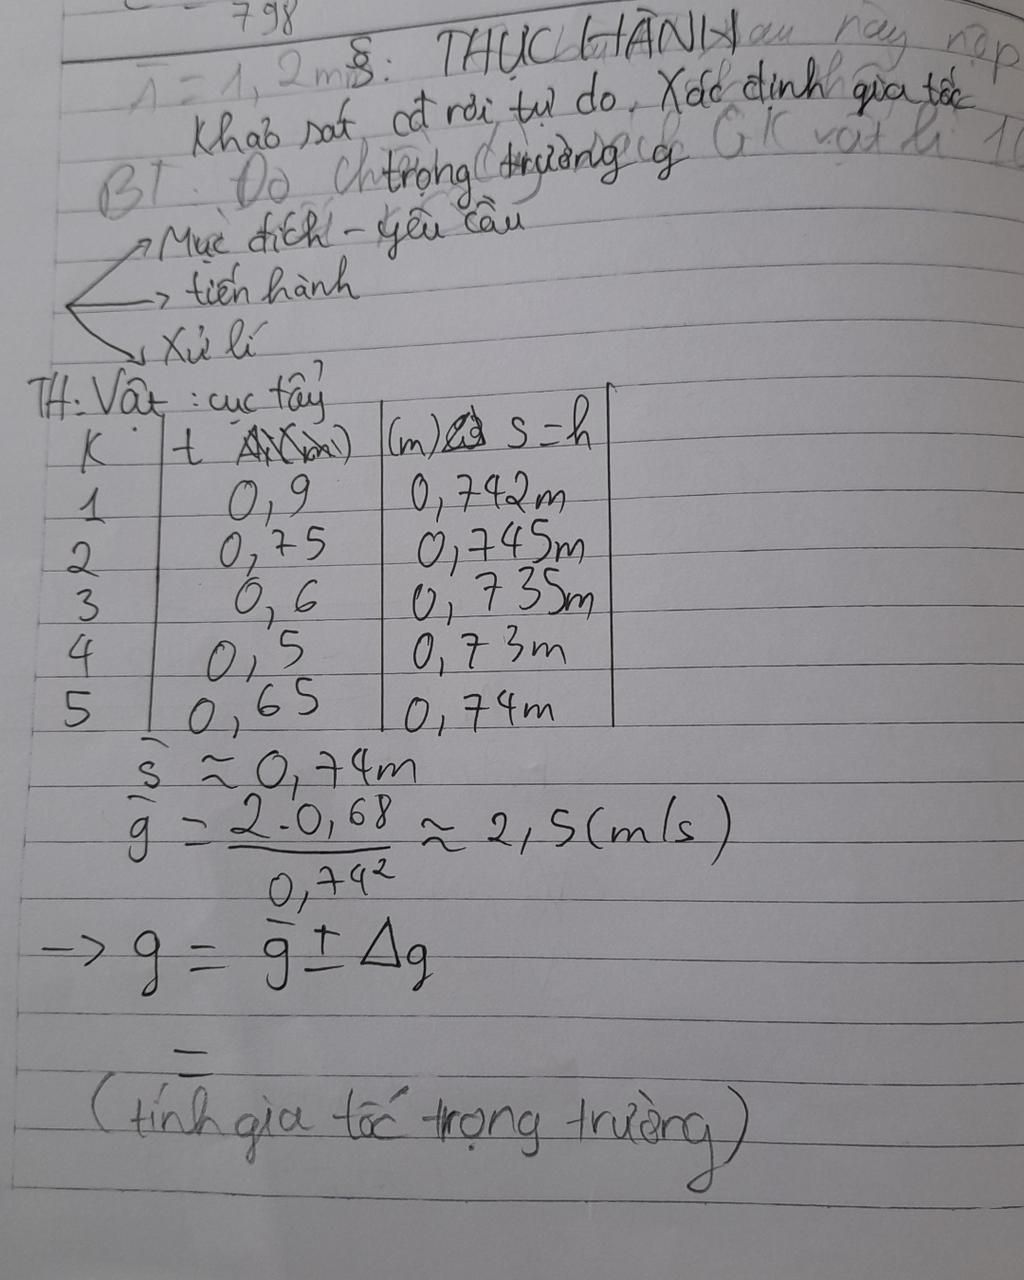 798
§: THỰC HÀNH
Khảo sát cđ rơi tự do. Xác định gia tốc
trọng trường g
BT: Đo
GK vật lí 10
Mục đích - yêu cầu
tiến hành
Xử lí
TH: Vật : cục tẩy
K t (m) s = h
1 0,9 0,742m
2 0,75 0,745m
3 0,6 0,735m
4 0,5 0,73m
5 0,65 0,74m
s̄ ≈ 0,74m
ḡ = 2.0,68 / 0,74² ≈ 2,5 (m/s)
-> g = ḡ ± Δg
=
(tính gia tốc trọng trường)